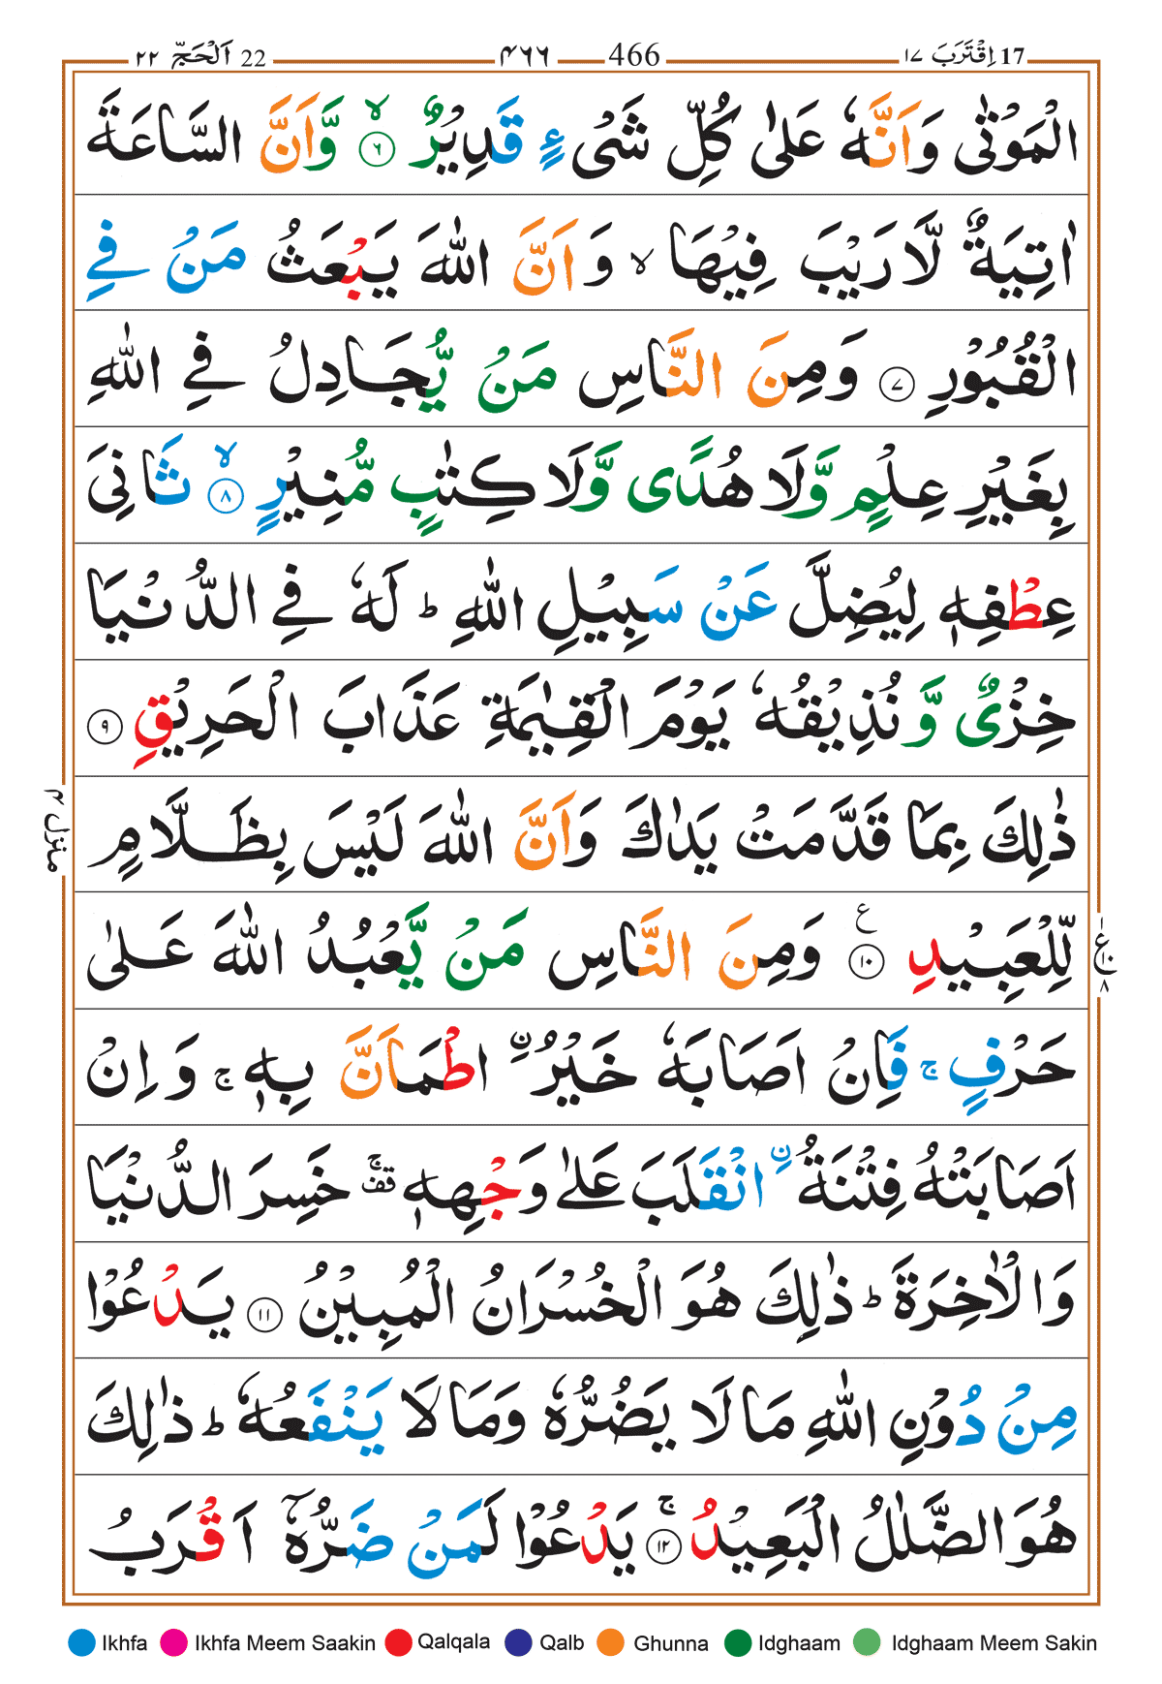 22 اَلْحَجّ ٢٢ 466 ٤٦٦ 17 اِقْتَرَبَ ١٧
الْمَوْتٰى وَاَنَّهٗ عَلٰى كُلِّ شَىْءٍ قَدِيْرٌ ۙ‏ ٦ وَّاَنَّ السَّاعَةَ
اٰتِيَةٌ لَّا رَيْبَ فِيْهَا ۙ وَاَنَّ اللّٰهَ يَبْعَثُ مَنْ فِى
الْقُبُوْرِ ٧ وَمِنَ النَّاسِ مَنْ يُّجَادِلُ فِى اللّٰهِ
بِغَيْرِ عِلْمٍ وَّلَا هُدًى وَّلَا كِتٰبٍ مُّنِيْرٍ ۙ‏ ٨ ثَانِىَ
عِطْفِهٖ لِيُضِلَّ عَنْ سَبِيْلِ اللّٰهِ ؕ لَهٗ فِى الدُّنْيَا
خِزْىٌ وَّنُذِيْقُهٗ يَوْمَ الْقِيٰمَةِ عَذَابَ الْحَرِيْقِ ٩
ذٰلِكَ بِمَا قَدَّمَتْ يَدٰكَ وَاَنَّ اللّٰهَ لَيْسَ بِظَلَّامٍ
لِّلْعَبِيْدِ ١٠ ع وَمِنَ النَّاسِ مَنْ يَّعْبُدُ اللّٰهَ عَلٰى
حَرْفٍ ۚ فَاِنْ اَصَابَهٗ خَيْرُ ۨ اطْمَاَنَّ بِهٖ ۚ وَاِنْ
اَصَابَتْهُ فِتْنَةُ ۨ انْقَلَبَ عَلٰى وَجْهِهٖ ۚ قف خَسِرَ الدُّنْيَا
وَالْاٰخِرَةَ ؕ ذٰلِكَ هُوَ الْخُسْرَانُ الْمُبِيْنُ ١١ يَدْعُوْا
مِنْ دُوْنِ اللّٰهِ مَا لَا يَضُرُّهٗ وَمَا لَا يَنْفَعُهٗ ؕ ذٰلِكَ
هُوَ الضَّلٰلُ الْبَعِيْدُ ۚ‏ ١٢ يَدْعُوْا لَمَنْ ضَرُّهٗۤ اَقْرَبُ
منزل ٤
ع ١٠ ٨
Ikhfa Ikhfa Meem Saakin Qalqala Qalb Ghunna Idghaam Idghaam Meem Sakin